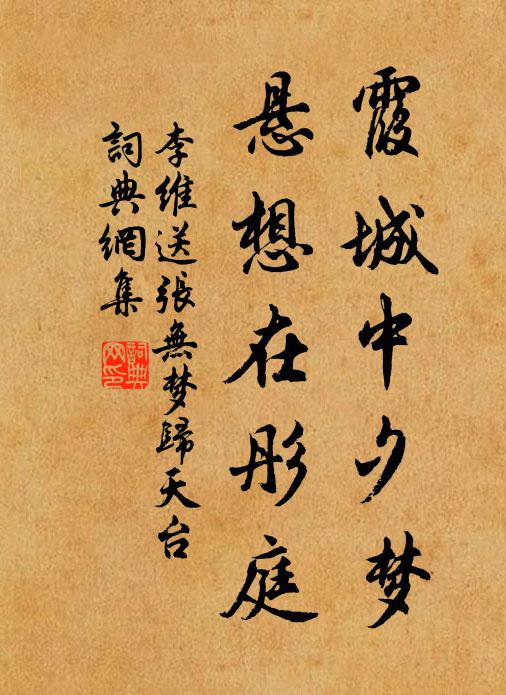 霞城中夕梦
悬想在彤庭
李维送張無梦歸天台
詞典網集
詞典
网印